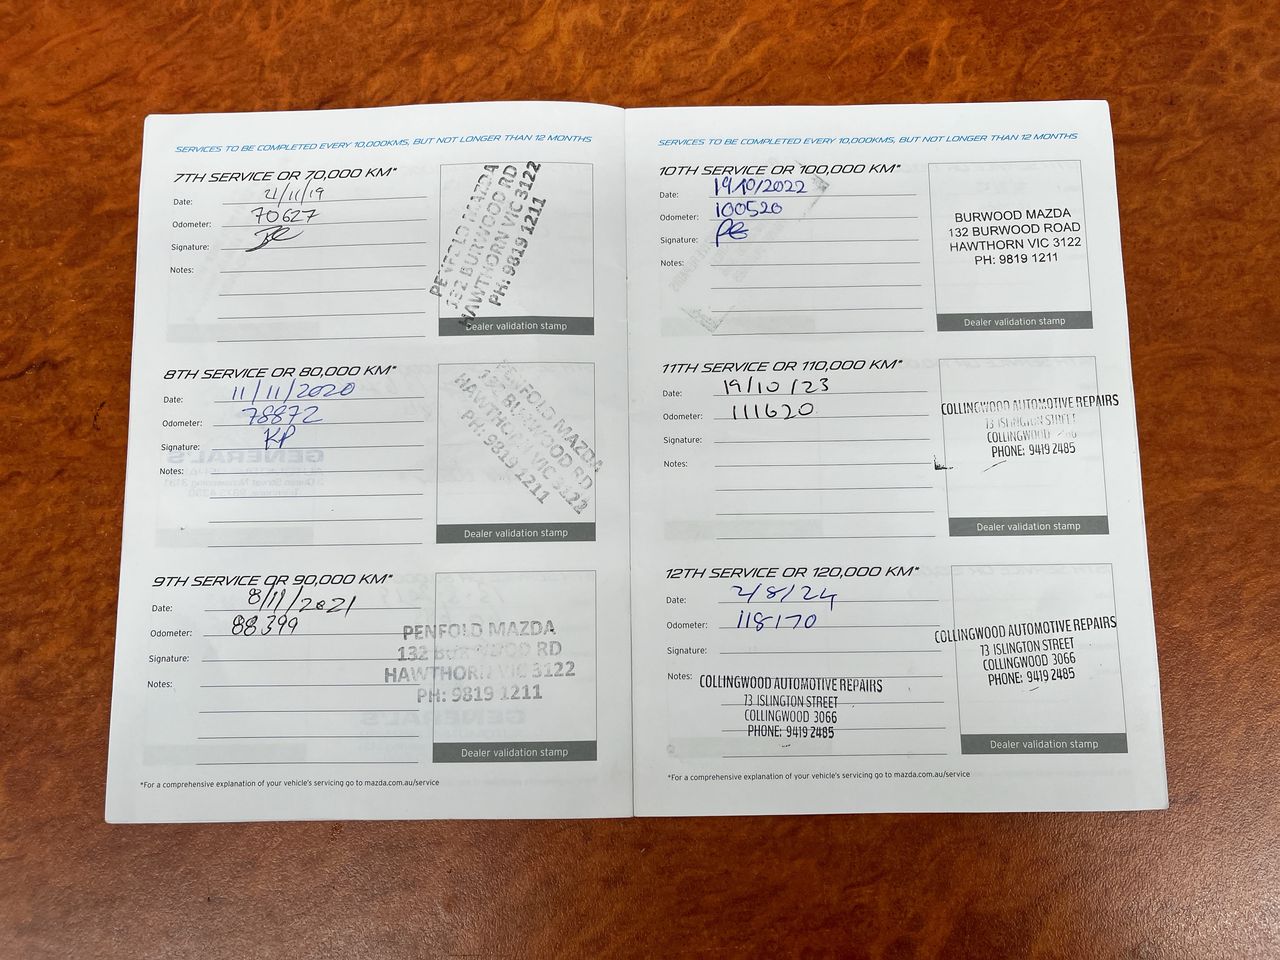 SERVICES TO BE COMPLETED EVERY 10,000KMS, BUT NOT LONGER THAN 12 MONTHS
7TH SERVICE OR 70,000 KM*
Date: 21/11/19
Odometer: 70627
Signature:
Notes:
PENFOLD MAZDA
132 BURWOOD RD
HAWTHORN VIC 3122
PH: 9819 1211
Dealer validation stamp
8TH SERVICE OR 80,000 KM*
Date: 11/11/2020
Odometer: 78872
Signature: KP
Notes:
PENFOLD MAZDA
132 BURWOOD RD
HAWTHORN VIC 3122
PH: 9819 1211
Dealer validation stamp
9TH SERVICE OR 90,000 KM*
Date: 8/11/2021
Odometer: 88399
Signature:
Notes:
PENFOLD MAZDA
132 BURWOOD RD
HAWTHORN VIC 3122
PH: 9819 1211
Dealer validation stamp
*For a comprehensive explanation of your vehicle's servicing go to mazda.com.au/service
SERVICES TO BE COMPLETED EVERY 10,000KMS, BUT NOT LONGER THAN 12 MONTHS
10TH SERVICE OR 100,000 KM*
Date: 19/10/2022
Odometer: 100520
Signature:
Notes:
BURWOOD MAZDA
132 BURWOOD ROAD
HAWTHORN VIC 3122
PH: 9819 1211
Dealer validation stamp
11TH SERVICE OR 110,000 KM*
Date: 19/10/23
Odometer: 111620
Signature:
Notes:
COLLINGWOOD AUTOMOTIVE REPAIRS
73 ISLINGTON STREET
COLLINGWOOD 3066
PHONE: 9419 2485
Dealer validation stamp
12TH SERVICE OR 120,000 KM*
Date: 2/8/24
Odometer: 118170
Signature:
Notes:
COLLINGWOOD AUTOMOTIVE REPAIRS
73 ISLINGTON STREET
COLLINGWOOD 3066
PHONE: 9419 2485
COLLINGWOOD AUTOMOTIVE REPAIRS
73 ISLINGTON STREET
COLLINGWOOD 3066
PHONE: 9419 2485
Dealer validation stamp
*For a comprehensive explanation of your vehicle's servicing go to mazda.com.au/service